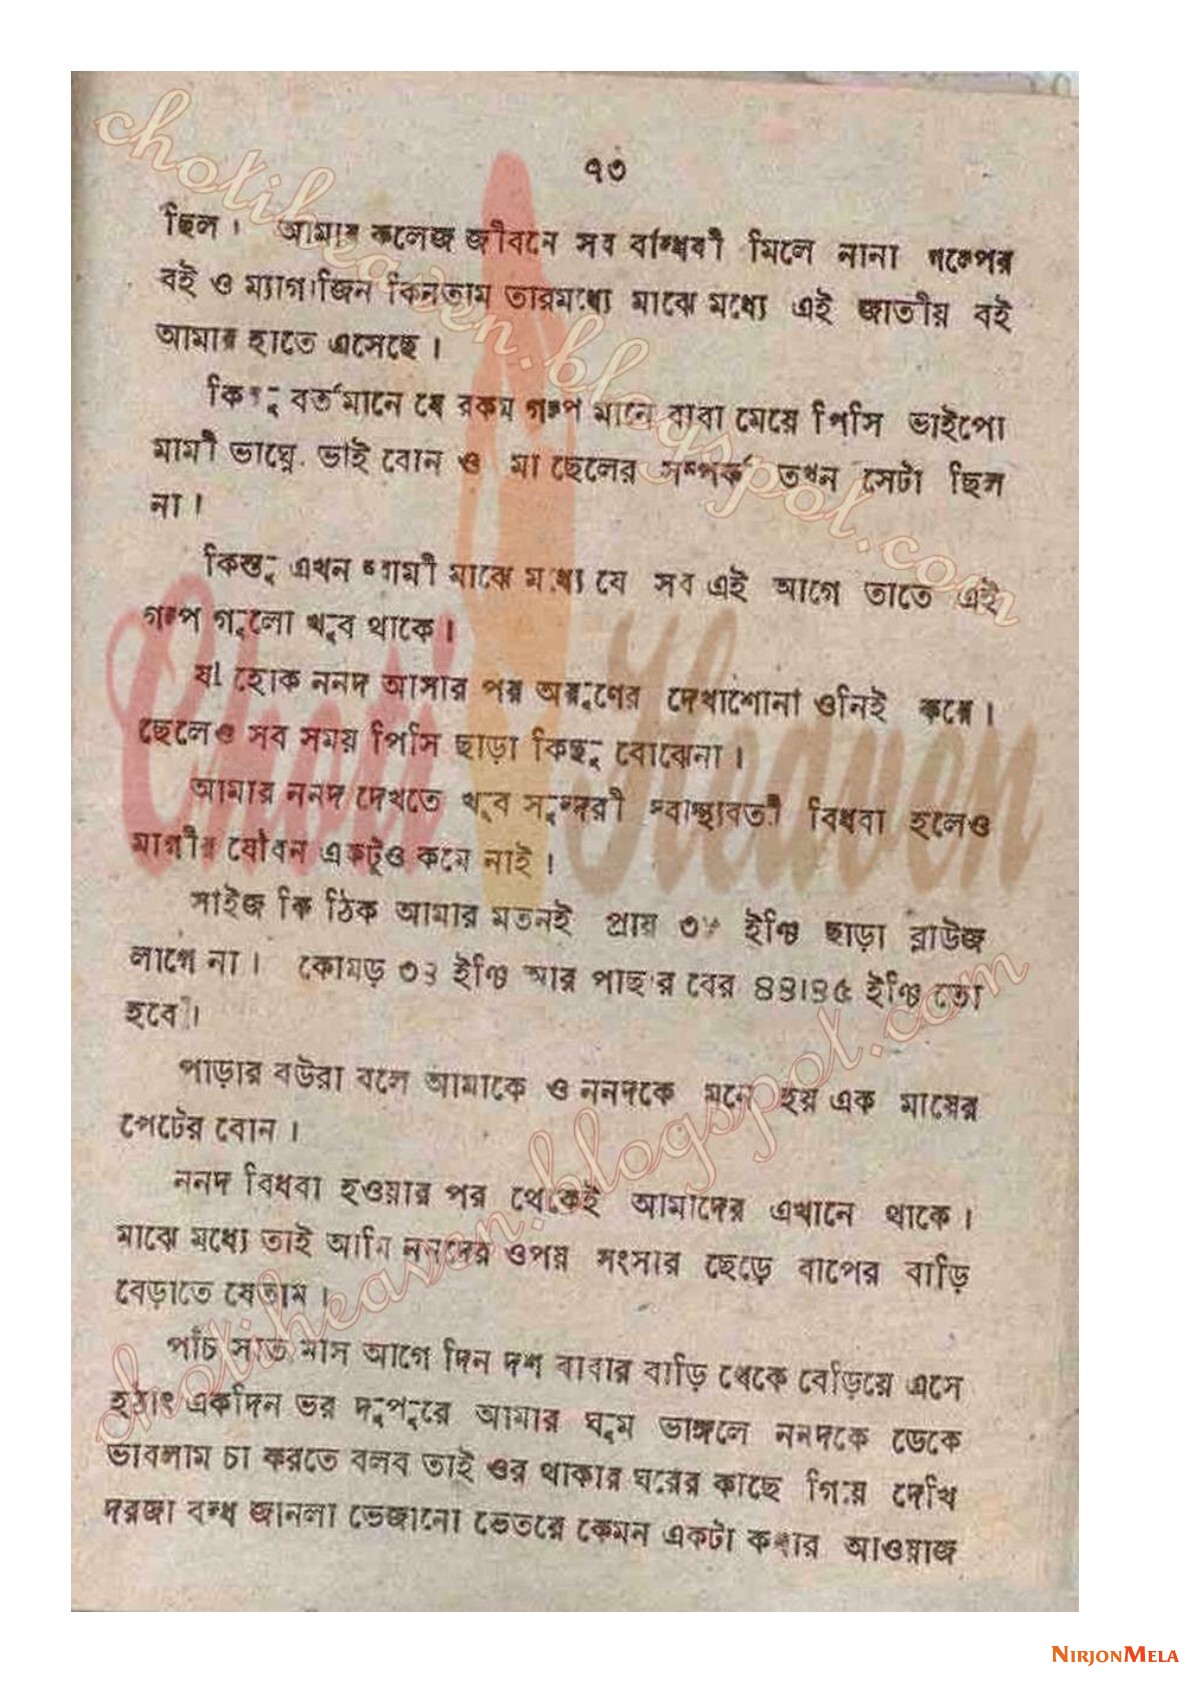 ৭৩
ছিল। আমার কলেজ জীবনে সব বান্ধবী মিলে নানা গল্পের
বই ও ম্যাগাজিন কিনতাম তারমধ্যে মাঝে মধ্যে এই জাতীয় বই
আমার হাতে এসেছে।
কিন্তু বর্তমানে যে রকম গল্প মানে বাবা মেয়ে পিসি ভাইপো
মামী ভাগ্নে ভাই বোন ও মা ছেলের সম্পর্ক তখন সেটা ছিল
না।
কিন্তু এখন স্বামী মাঝে মধ্যে যে সব এই আগে তাতে এই
গল্প গুলো খুব থাকে।
যা হোক ননদ আসার পর অরুণের দেখাশোনা ওনিই করে।
ছেলেও সব সময় পিসি ছাড়া কিছু বোঝেনা।
আমার ননদ দেখতে খুব সুন্দরী স্বাস্থ্যবতী বিধবা হলেও
মাগীর যৌবন একটুও কমে নাই।
সাইজ কি ঠিক আমার মতনই প্রায় ইঞ্চি ছাড়া ব্লাউজ
লাগে না। কোমড় ৩২ ইঞ্চি আর পাছার বের ৪৪।৪৫ ইঞ্চি তো
হবে।
পাড়ার বউরা বলে আমাকে ও ননদকে মনে হয় এক মায়ের
পেটের বোন।
ননদ বিধবা হওয়ার পর থেকেই আমাদের এখানে থাকে।
মাঝে মধ্যে তাই আমি ননদের ওপর সংসার ছেড়ে বাপের বাড়ি
বেড়াতে যেতাম।
পাঁচ সাত মাস আগে দিন দশ বাবার বাড়ি থেকে বেড়িয়ে এসে
হঠাৎ একদিন ভর দুপুরে আমার ঘুম ভাঙ্গলে ননদকে ডেকে
ভাবলাম চা করতে বলব তাই ওর থাকার ঘরের কাছে গিয়ে দেখি
দরজা বন্ধ জানলা ভেজানো ভেতরে কেমন একটা কথার আওয়াজ
chotiheaven.blogspot.com
Choti Heaven
chotiheaven.blogspot.com
NIRJONMELA